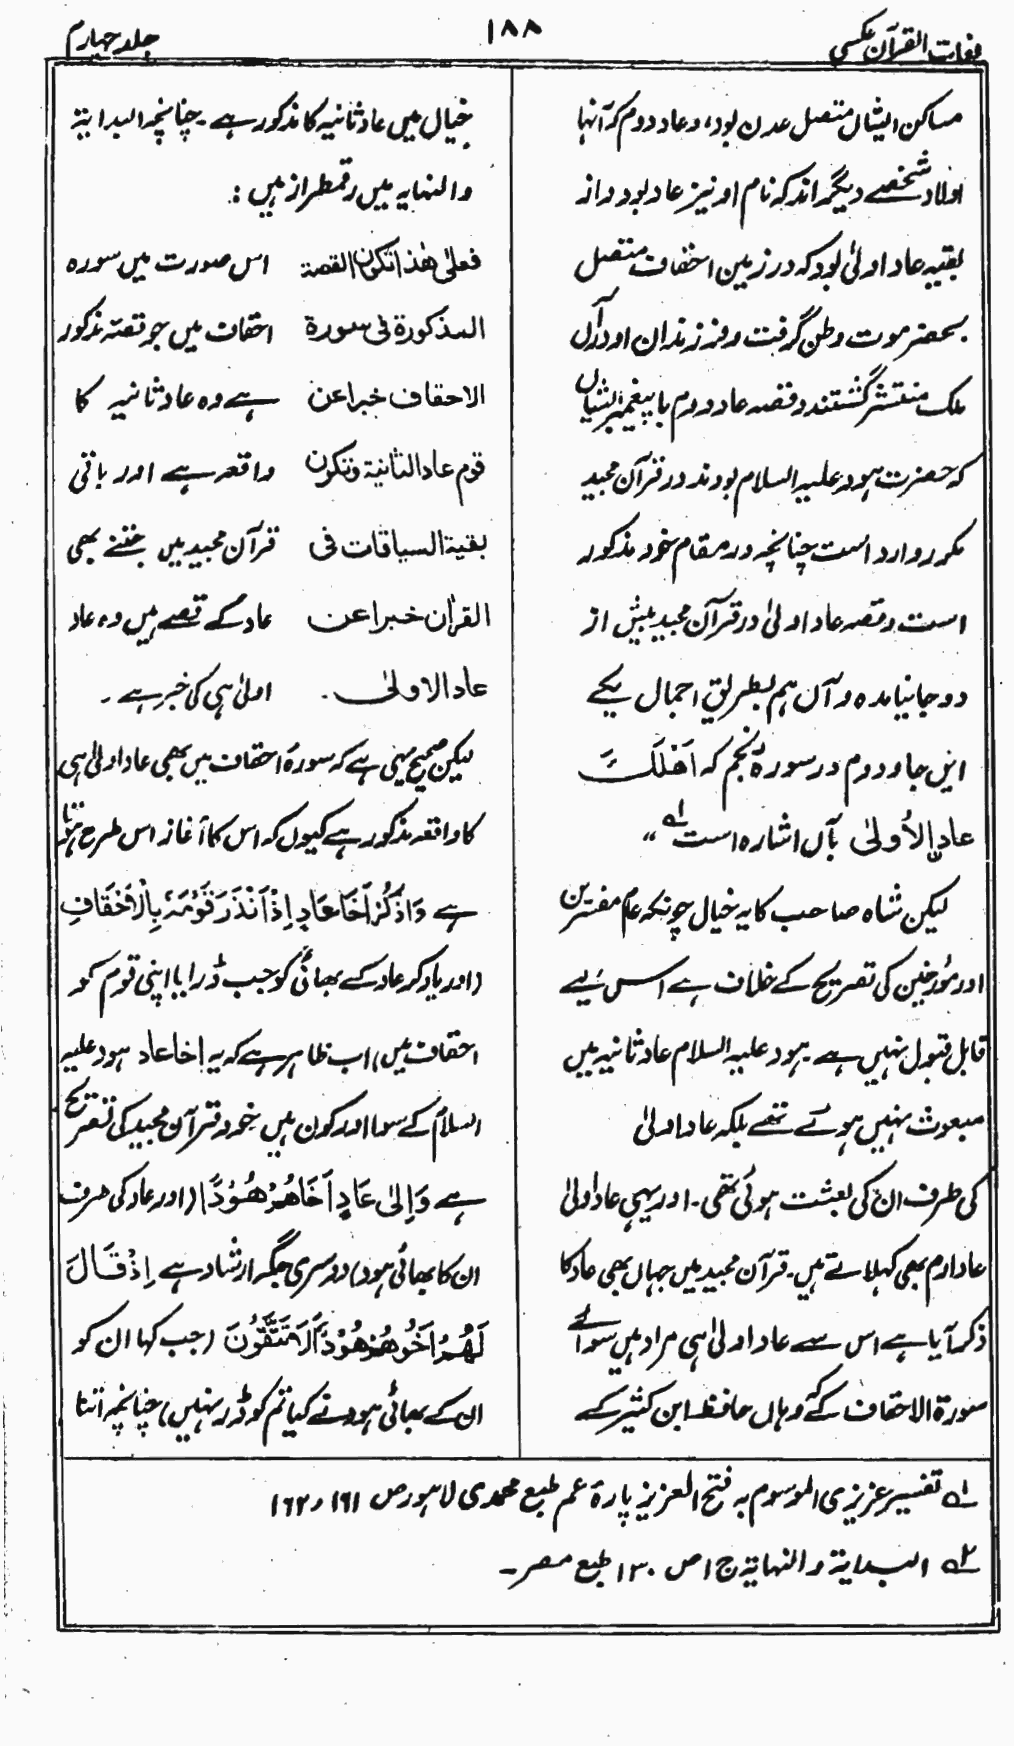 لغات القرآن عکسی
۱۸۸
جلد چہارم
مساکن ایشاں متصل عدن بود، و عاد دوم کہ آنہا
اولاد شخصے دیگر اند کہ نام او نیز عاد بود و از
بقیہ عاد اولیٰ بود کہ در زمین احقاف متصل
بحضر موت وطن گرفت و فرزندان او در آں
ملک منتشر گشتند و قصہ عاد دوم با پیغمبر ایشاں
کہ حضرت ہود علیہ السلام بودند در قرآن مجید
مکرر وارد است چنانچہ در مقام خود مذکور
است و قصہ عاد اولیٰ در قرآن مجید بیش از
دو جا نیامدہ و آں ہم بطریق اجمال یکے
ایں جا و دوم در سورہ نجم کہ اَهْلَكَ
عَادَاِۨ الْاُولٰى بآں اشارہ است لہ"
لیکن شاہ صاحب کا یہ خیال چونکہ عام مفسرین
اور مؤرخین کی تصریح کے خلاف ہے اس لیے
قابل قبول نہیں ہے۔ ہود علیہ السلام عاد ثانیہ میں
مبعوث نہیں ہوئے تھے بلکہ عاد اولیٰ
کی طرف ان کی بعثت ہوئی تھی۔ اور یہی عاد اولیٰ
عاد ارم بھی کہلاتے ہیں۔ قرآن مجید میں جہاں بھی عاد کا
ذکر آیا ہے اس سے عاد اولیٰ ہی مراد ہیں سوائے
سورۃ الاحقاف کے کہ وہاں حافظ ابن کثیر کے
خیال میں عاد ثانیہ کا مذکور ہے۔ چنانچہ البدایۃ
والنہایہ میں رقمطراز ہیں :
فعلى هٰذا تكون القصة
المذكورة فى سورة
الاحقاف خبرا عن
قوم عاد الثانية وتكون
بقية السياقات فى
القرآن خبرا عن
عاد الاولىٰ۔
اس صورت میں سورہ
احقاف میں جو قصہ مذکور
ہے وہ عاد ثانیہ کا
واقعہ ہے اور باقی
قرآن مجید میں جتنے بھی
عاد کے قصے ہیں وہ عاد
اولیٰ ہی کی خبر ہے ۔
لیکن صحیح یہی ہے کہ سورۂ احقاف میں بھی عاد اولیٰ ہی
کا واقعہ مذکور ہے کیوں کہ اس کا آغاز اس طرح ہوتا
ہے وَاذْكُرْ اَخَا عَادٍ اِذْ اَنْذَرَ قَوْمَهٗ بِالْاَحْقَافِ
(اور یاد کر عاد کے بھائی کو جب ڈرایا اپنی قوم کو
احقاف میں) اب ظاہر ہے کہ یہ اخا عاد ہود علیہ
السلام کے سوا اور کون ہیں خود قرآن مجید کی تصریح
ہے وَاِلٰى عَادٍ اَخَاهُمْ هُوْدًا (اور عاد کی طرف
ان کا بھائی ہود) دوسری جگہ ارشاد ہے اِذْ قَالَ
لَهُمْ اَخُوْهُمْ هُوْدٌ اَلَا تَتَّقُوْنَ (جب کہا ان کو
ان کے بھائی ہود نے کیا تم کو ڈر نہیں) چنانچہ اتنا
۱؎ تفسیر عزیزی الموسوم بہ فتح العزیز پارۂ عم طبع محمدی لاہور ص ۱۶۱ و ۱۶۲
۲؎ البدایۃ والنہایۃ ج ۱ ص ۱۳۰ طبع مصر۔